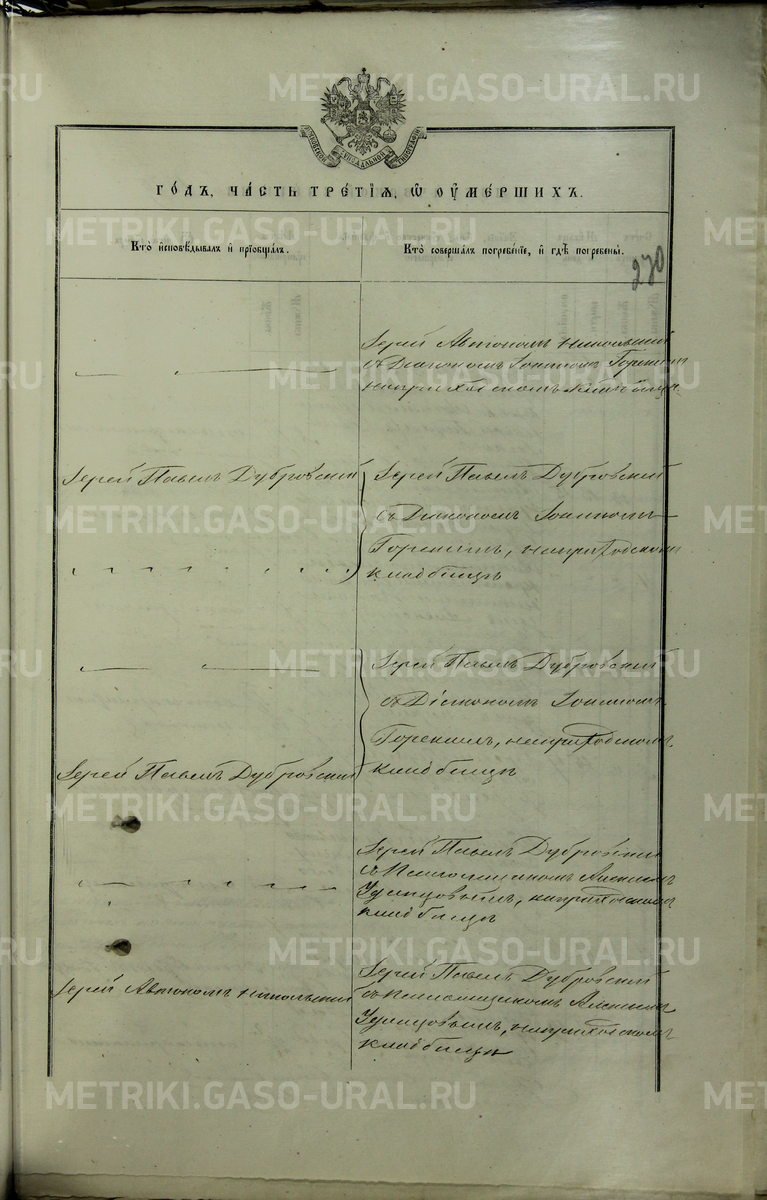 МОСКОВСКОЙ СѴНОДАЛЬНОЙ ТИПОГРАФІИ
ГО́ДЪ, ЧА́СТЬ ТРЕ́ТІѦ, Ѡ҆ ОУ҆МЕ́РШИХЪ.
Кто̀ и҆сповѣ́дывалъ и҆ прїѡбща́лъ.
Кто̀ соверша́лъ погребе́нїе, и҆ гдѣ̀ погребены̀.
270
Іерей Автономъ Никольскій
съ Діакономъ Іоанномъ Горскимъ
на приходскомъ кладбищѣ
Іерей Павелъ Дубровскій
Іерей Павелъ Дубровскій
съ Діакономъ Іоанномъ
Горскимъ, на приходскомъ
кладбищѣ
Іерей Павелъ Дубровскій
съ Діакономъ Іоанномъ
Горскимъ, на приходскомъ
кладбищѣ
Іерей Павелъ Дубровскій
Іерей Павелъ Дубровскій
съ Псаломщикомъ
на приходскомъ
кладбищѣ
Іерей Автономъ Никольскій
Іерей Павелъ Дубровскій
съ Псаломщикомъ
на приходскомъ
кладбищѣ
METRIKI.GASO-URAL.RU